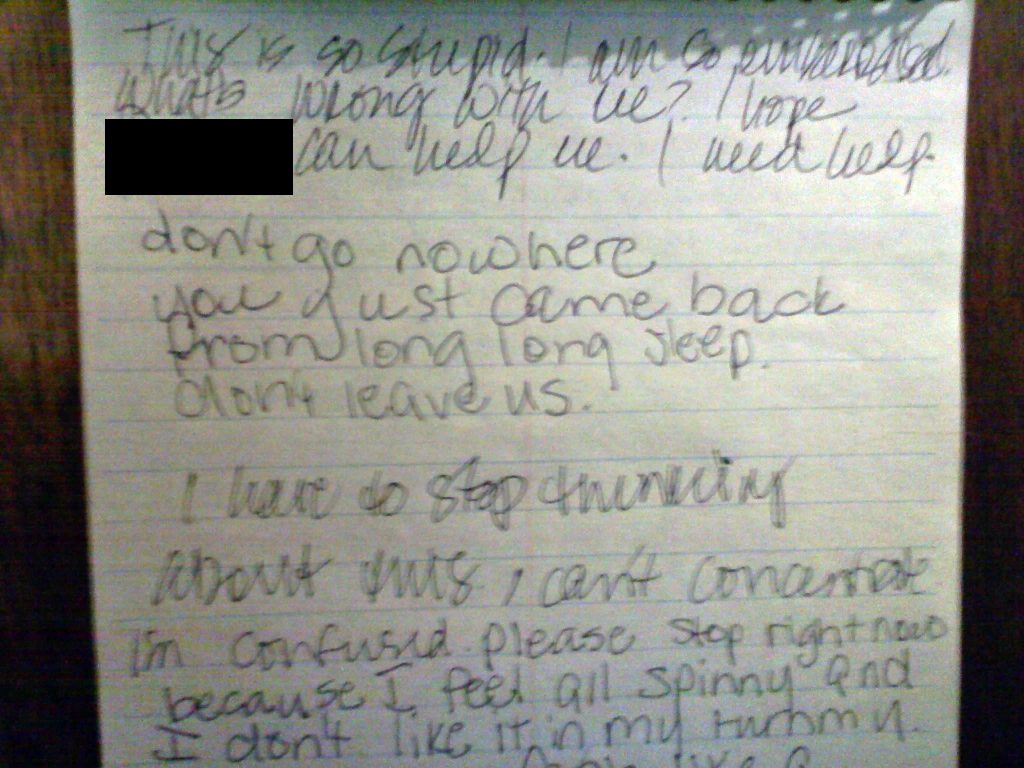 This is so stupid. I am so embarassed.
Whats wrong with me? I hope
can help me. I need help.
don't go nowhere
you just came back
from long long sleep.
don't leave us.
I have to stop thinking
about this, can't concentrate
I'm confused. please stop right now
because I feel all spinny and
I don't like it in my tummy.
like a